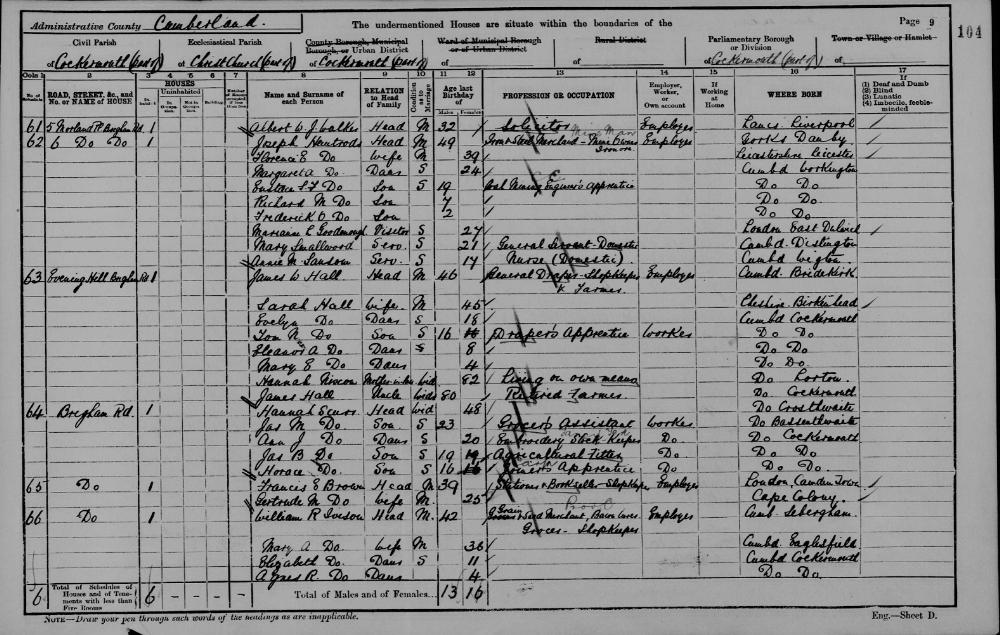 Administrative County Cumberland.
The undermentioned Houses are situate within the boundaries of the
Page 9
104
Civil Parish
Ecclesiastical Parish
County Borough, Municipal Borough, or Urban District
Ward of Municipal Borough or of Urban District
Rural District
Parliamentary Borough or Division
Town or Village or Hamlet
of Cockermouth (part of)
of Christ Church (part of)
of Cockermouth (part of)
of
of
of Cockermouth (part of)
of
Cols 1 2 3 4 5 6 7 8 9 10 11 12 13 14 15 16 17
No. of Schedule
ROAD, STREET, &c., and No. or NAME of HOUSE
HOUSES
Uninhabited
Name and Surname of each Person
RELATION to Head of Family
Condition as to Marriage
Age last Birthday of
Males Females
PROFESSION OR OCCUPATION
Employer, Worker, or Own account
If Working at Home
WHERE BORN
If
(1) Deaf and Dumb
(2) Blind
(3) Lunatic
(4) Imbecile, feeble-minded
61 5 Brigham Rd 1 Albert W. J. Walker Head M 32 Solicitor Employer Lancs. Liverpool
62 6 Do Do 1 Joseph Head M 49 Iron & Steel Merchant - Employer Yorks Danby
Florence E Do Wife M 39 Leicestershire Leicester
Margaret A Do Daur S 24 Cumbd Workington
Eustace Do Son S 19 Coal Mining Engineer's Apprentice Do Do
Richard M Do Son 7 Do Do
Frederick Do Son 2 Do Do
Marianne Visitor S 27 London East Dulwich
Mary Smallwood Serv. S 21 General Servant - Domestic Cumbd. Distington
Annie M Sansom Serv. S 17 Nurse (Domestic) Cumbd Wigton
63 Evening Hill Brigham Rd 1 James W Hall Head M 46 General Draper - Shopkeeper & Farmer. Employer Cumbd. Bridekirk
Sarah Hall Wife. M 45 Cheshire. Birkenhead
Evelyn Do Daur S 18 Cumbd Cockermouth
Do Son S 16 Draper's Apprentice Worker Do Do
Eleanor A Do Daur S 8 Do Do
Mary E Do Daur 4 Do Do.
Hannah Mother in law Wid. 82 Living on own means Do Lorton.
James Hall Uncle Widr 80 Retired Farmer Do. Cockermouth
64 Brigham Rd. 1 Hannah Head Wid 48 Do Crosthwaite
Jas M Do Son S 23 Grocer's Assistant Worker Do Bassenthwaite
Ann J Do Daur S 20 Embroidery Stock Keeper Do. Do Cockermouth
Jas B Do Son S 19 Agricultural Fitter Do. Do Do
Horace Do. Son S 16 Joiner's Apprentice Do Do. Do.
65 Do 1 Francis E Brown Head M 39 Stationer & Bookseller - Shopkeeper Employer London, Camden Town
Gertrude M Do Wife M. 25 Cape Colony.
66 Do 1 William R Iveson Head M. 42 Grain & Seed Merchant, Bacon Curer Grocer - Shopkeeper Employer Cumb. Sebergham.
Mary A Do. Wife M 36 Cumbd. Eaglesfield
Elizabeth Do. Daur S 11 Cumbd Cockermouth
Agnes R. Do Daur 4 Do Do.
6 Total of Schedules of Houses and of Tenements with less than Five Rooms 6 - - - - Total of Males and of Females... 13 16
NOTE—Draw your pen through such words of the headings as are inapplicable.
Eng.—Sheet D.